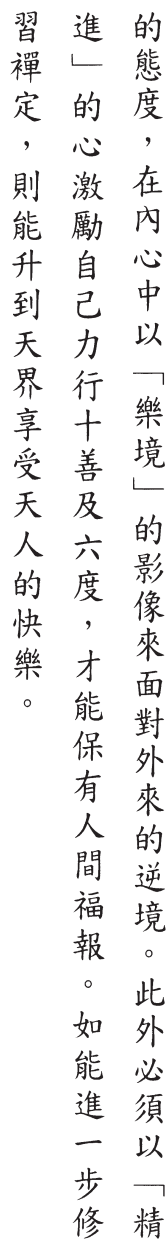 的態度，在內心中以「樂境」的影像來面對外來的逆境。此外必須以「精
進」的心激勵自己力行十善及六度，才能保有人間福報。如能進一步修
習禪定，則能升到天界享受天人的快樂。